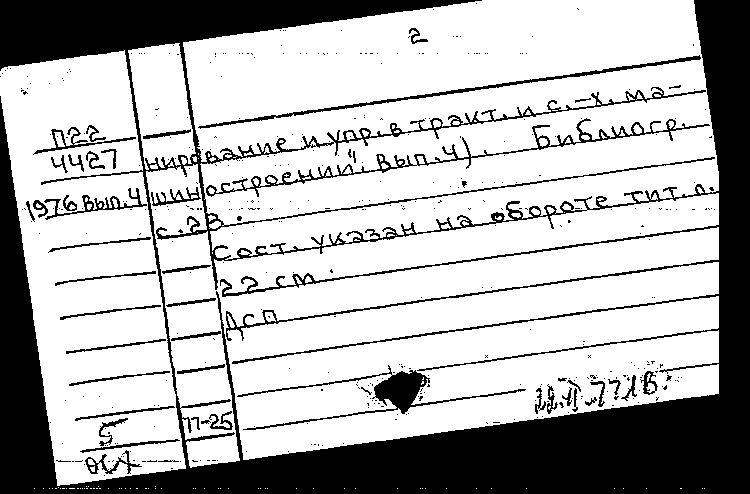 2
П22
4427
1976 вып.4
нирование и упр. в тракт. и с.-х. ма-
шиностроении". Вып.4). Библиогр.
с.23.
Сост. указан на обороте тит. л.
22 см.
ДСП
5
П-25
22.II.77